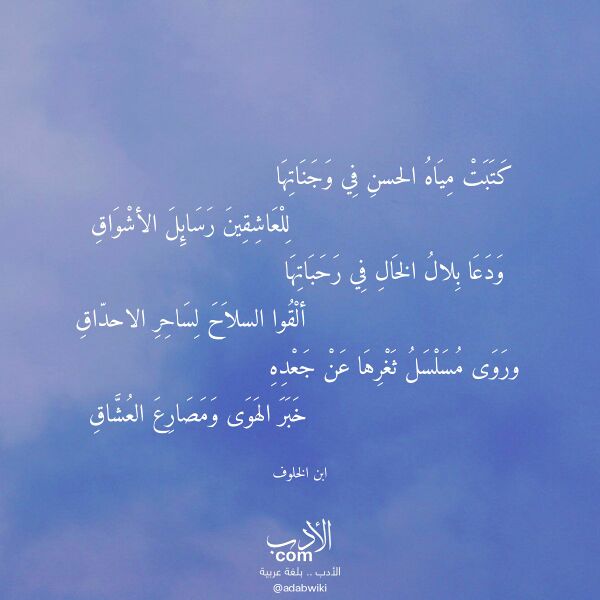 كَتَبَتْ مِيَاهُ الحسنِ فِي وَجَنَاتِهَا
لِلْعَاشِقِينَ رَسَائِلَ الأشْوَاقِ
وَدَعَا بِلالُ الخَالِ فِي رَحَبَاتِهَا
ألْقُوا السلاَحَ لِسَاحِرِ الاحدّاقِ
ورَوَى مُسَلْسَلُ ثَغْرِهَا عَنْ جَعْدِهِ
خَبَرَ الهَوَى وَمَصَارِعَ العُشَّاقِ
ابن الخلوف
الأدب
com
الأدب .. بلغة عربية
@adabwiki